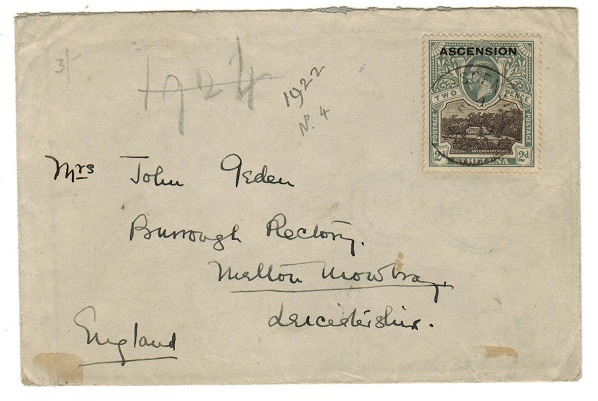 3/-
1924
1922
No. 4
ASCENSION
TWO PENCE
POSTAGE POSTAGE
2d ST HELENA 2d
Mrs John Geden
Burrough Rectory.
Melton Mowbray,
Leicestershire.
England